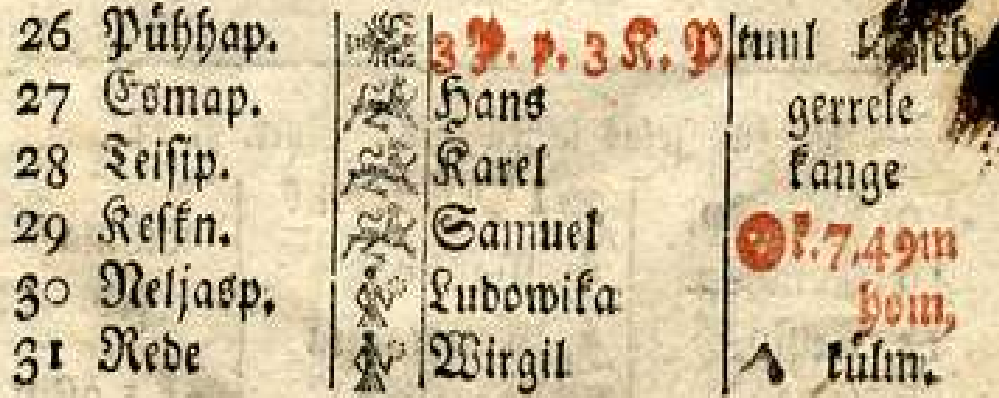 26 Pühhap. 3 P. p. 3 K. P. tuul
27 Esmap. Hans gerrele
28 Teisip. Karel kange
29 Keskn. Samuel k. 7, 49 m
30 Neljasp. Ludowika hom,
31 Rede Wirgil külm.